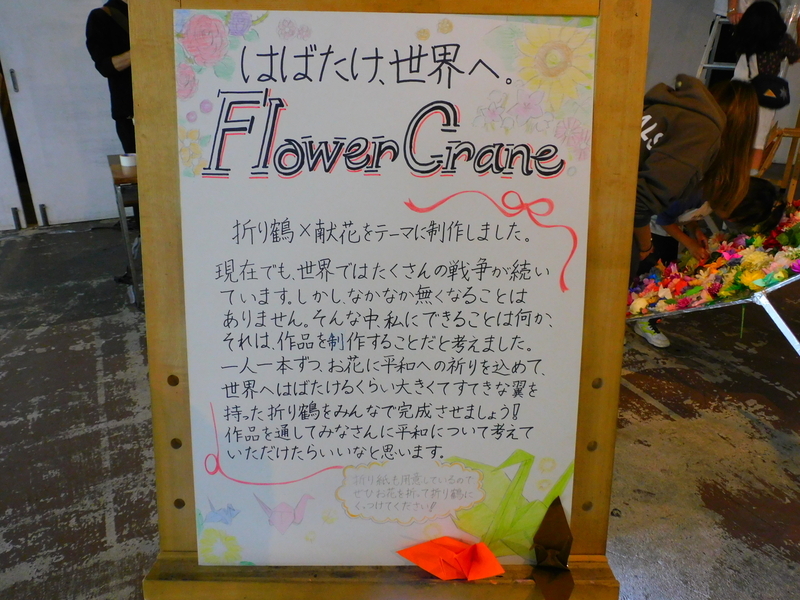 はばたけ、世界へ。
Flower Crane
折り鶴×献花をテーマに制作しました。
現在でも、世界ではたくさんの戦争が続い
ています。しかし、なかなか無くなることは
ありません。そんな中、私にできることは何か、
それは、作品を制作することだと考えました。
一人一本ずつ、お花に平和への祈りを込めて、
世界へはばたけるくらい大きくてすてきな翼を
持った折り鶴をみんなで完成させましょう!
作品を通してみなさんに平和について考えて
いただけたらいいなと思います。
折り紙を用意しているので
ぜひお花を折って折り鶴に
くっつけてください!